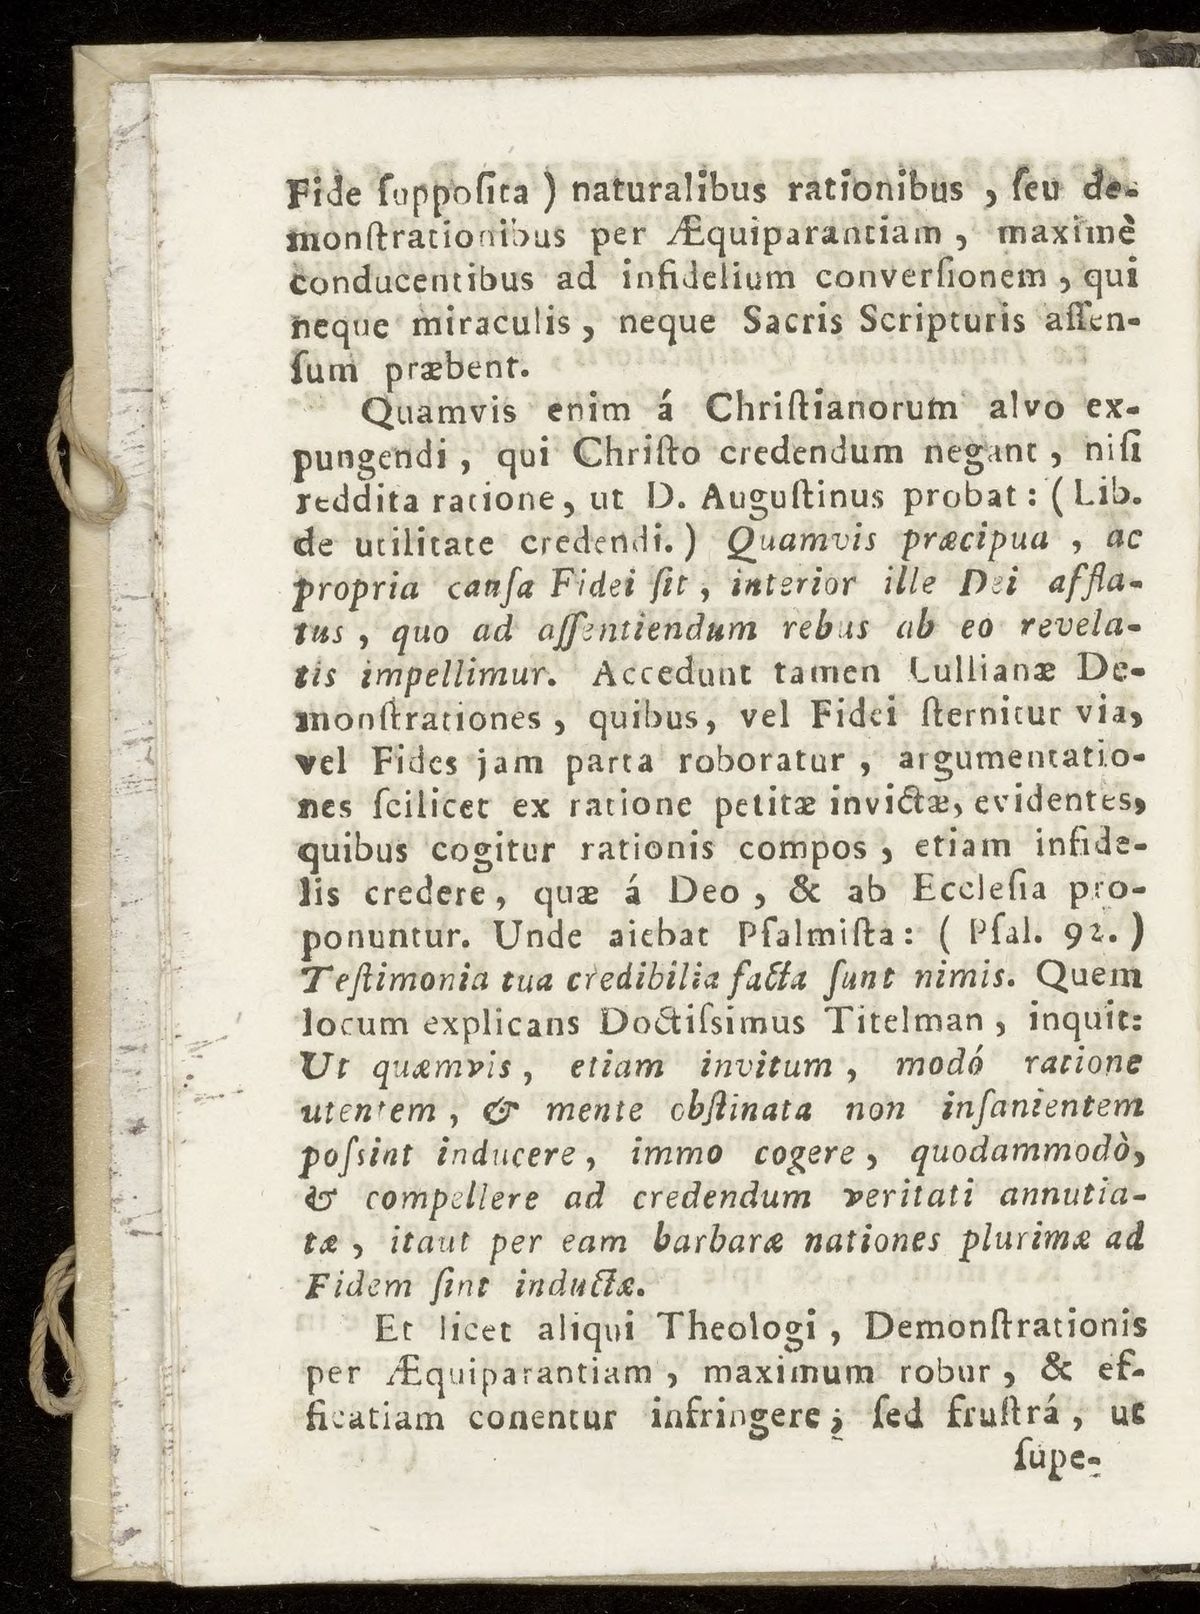 Fide ſuppoſita ) naturalibus rationibus , ſeu de-
monſtrationibus per Æquiparantiam , maximè
conducentibus ad infidelium converſionem , qui
neque miraculis , neque Sacris Scripturis aſſen-
ſum præbent.
Quamvis enim á Chriſtianorum alvo ex-
pungendi , qui Chriſto credendum negant , niſi
reddita ratione , ut D. Auguſtinus probat : ( Lib.
de utilitate credendi. ) Quamvis præcipua , ac
propria cauſa Fidei ſit , interior ille Dei affla-
tus , quo ad aſſentiendum rebus ab eo revela-
tis impellimur. Accedunt tamen Lullianæ De-
monſtrationes , quibus , vel Fidei ſternitur via,
vel Fides jam parta roboratur , argumentatio-
nes ſcilicet ex ratione petitæ invictæ, evidentes,
quibus cogitur rationis compos , etiam infide-
lis credere , quæ á Deo , & ab Eccleſia pro-
ponuntur. Unde aiebat Pſalmiſta : ( Pſal. 92. )
Teſtimonia tua credibilia facta ſunt nimis. Quem
locum explicans Doctiſsimus Titelman , inquit:
Ut quæmvis , etiam invitum , modó ratione
utentem , & mente obſtinata non inſanientem
poſsint inducere , immo cogere , quodammodò,
& compellere ad credendum veritati annutia-
tæ , itaut per eam barbaræ nationes plurimæ ad
Fidem ſint inductæ.
Et licet aliqui Theologi , Demonſtrationis
per Æquiparantiam , maximum robur , & ef-
ficatiam conentur infringere ; ſed fruſtrá , ut
ſupe-